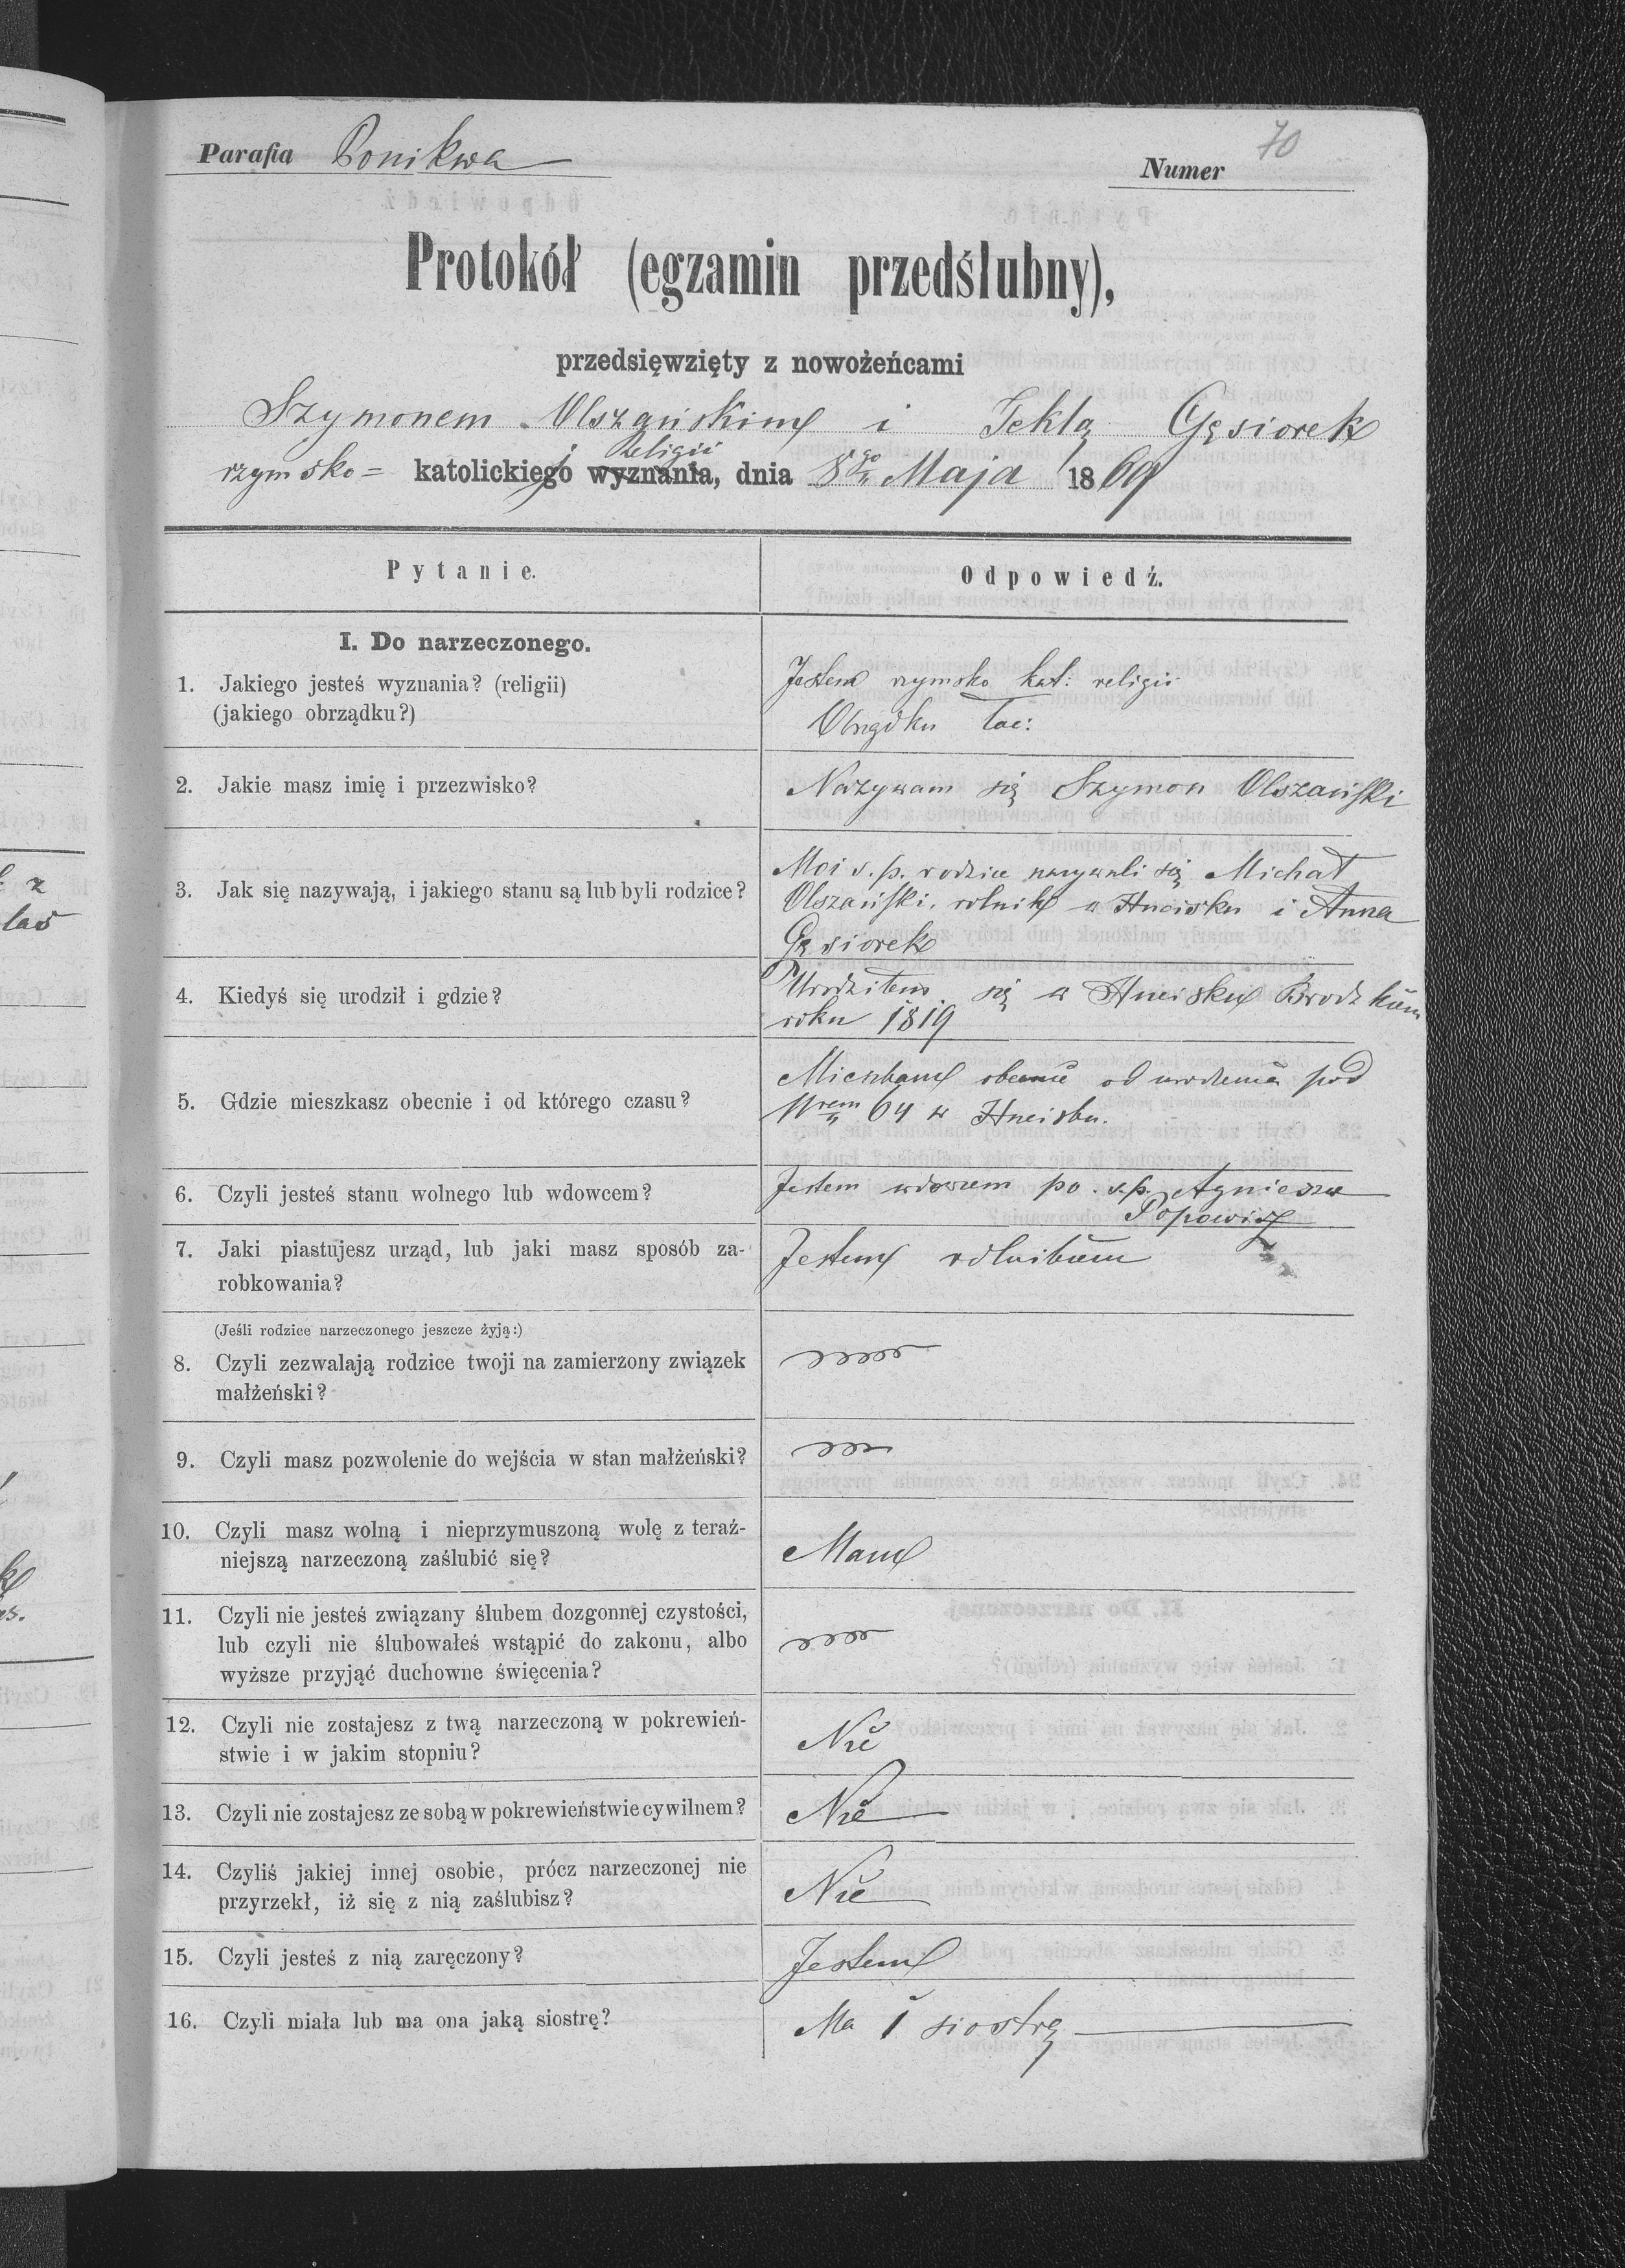 Parafia Ponikwa
Numer 70
Protokół (egzamin przedślubny),
przedsięwzięty z nowożeńcami
Szymonem Olszańskim i Teklą Gąsiorek
religii
rzymsko= katolickiej wyznania, dnia 8go Maja 1869
Pytanie.
Odpowiedź.
I. Do narzeczonego.
1. Jakiego jesteś wyznania? (religii)
(jakiego obrządku?)
Jestem rzymsko kat: religii
Obrządku łac:
2. Jakie masz imię i przezwisko?
Nazywam się Szymon Olszański
3. Jak się nazywają, i jakiego stanu są lub byli rodzice?
Moi s.p. rodzice nazywali się Michał
Olszański, rolnik w Hucisku i Anna
Gąsiorek
4. Kiedyś się urodził i gdzie?
Urodziłem się w Hucisku Brodzkiem
roku 1819
5. Gdzie mieszkasz obecnie i od którego czasu?
Mieszkam obecnie od urodzenia pod
Nrem 64 w Hucisku.
6. Czyli jesteś stanu wolnego lub wdowcem?
Jestem wdowcem po s.p. Agniesze
Popowicz
7. Jaki piastujesz urząd, lub jaki masz sposób za-
robkowania?
Jestem rolnikiem
(Jeśli rodzice narzeczonego jeszcze żyją:)
8. Czyli zezwalają rodzice twoji na zamierzony związek
małżeński?
9. Czyli masz pozwolenie do wejścia w stan małżeński?
10. Czyli masz wolną i nieprzymuszoną wolę z teraź-
niejszą narzeczoną zaślubić się?
Mam
11. Czyli nie jesteś związany ślubem dozgonnej czystości,
lub czyli nie ślubowałeś wstąpić do zakonu, albo
wyższe przyjąć duchowne święcenia?
12. Czyli nie zostajesz z twą narzeczoną w pokrewień-
stwie i w jakim stopniu?
Nie
13. Czyli nie zostajesz ze sobą w pokrewieństwie cywilnem?
Nie
14. Czyliś jakiej innej osobie, prócz narzeczonej nie
przyrzekł, iż się z nią zaślubisz?
Nie
15. Czyli jesteś z nią zaręczony?
Jestem
16. Czyli miała lub ma ona jaką siostrę?
Ma 1 siostrę